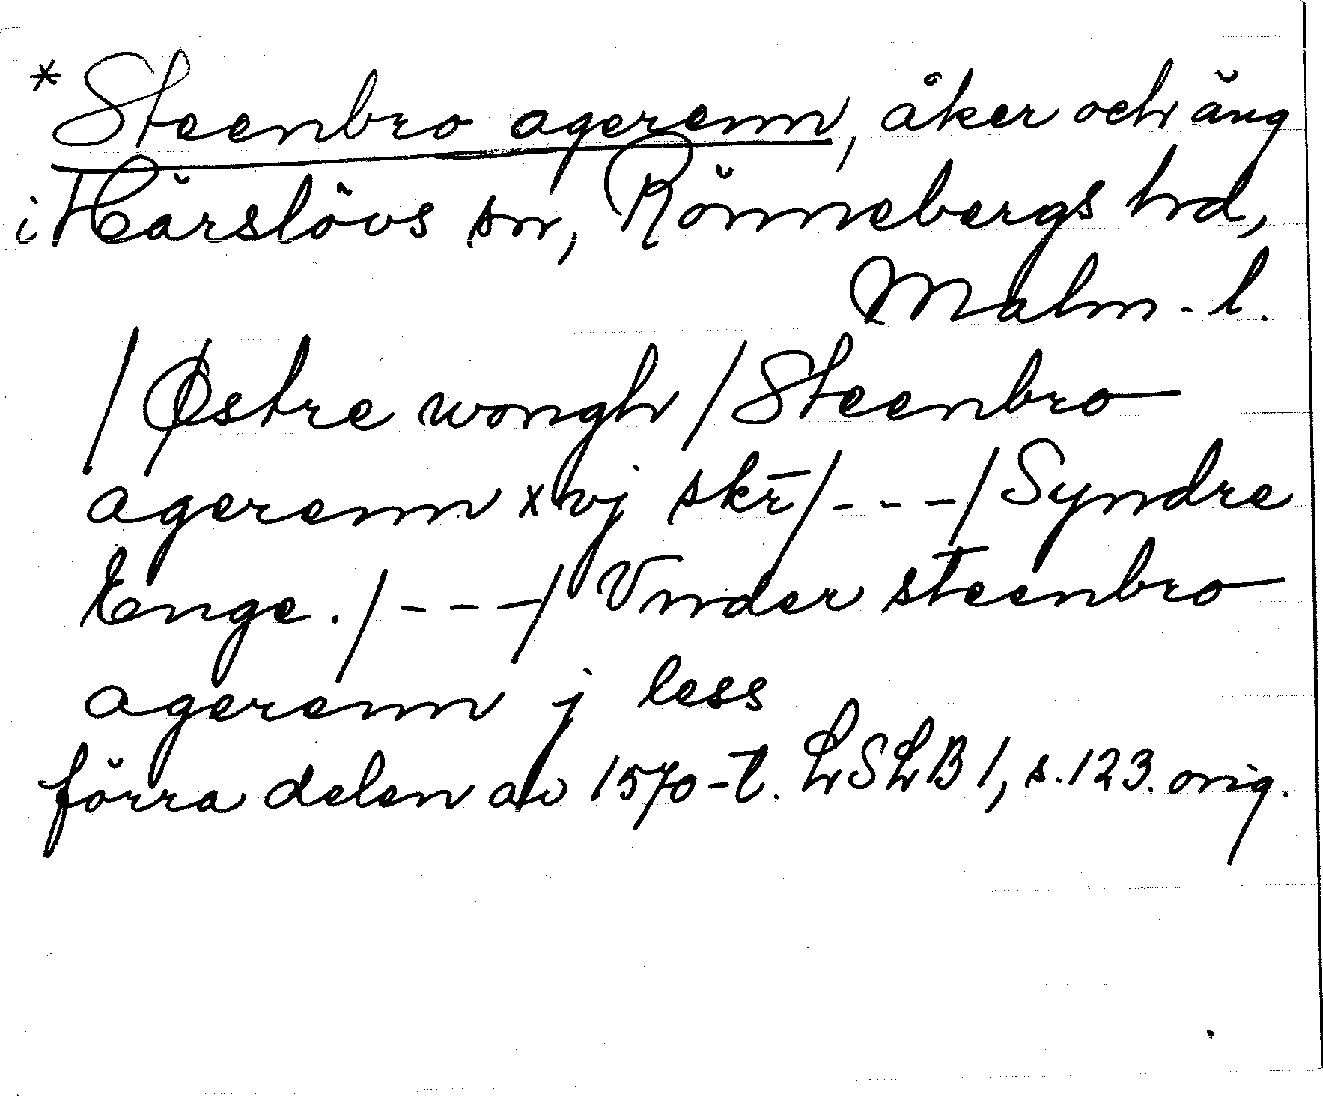 * Steenbro agerenn, åker och äng
i Härslövs sn, Rönnebergs hd,
Malm-l.
/Østre wongh/Steenbro
agerenn xvj skr̅/---/Syndre
Enge./---/Vnder steenbro
agerenn j less
förra delen av 1570-t. LSLB 1, s. 123. orig.